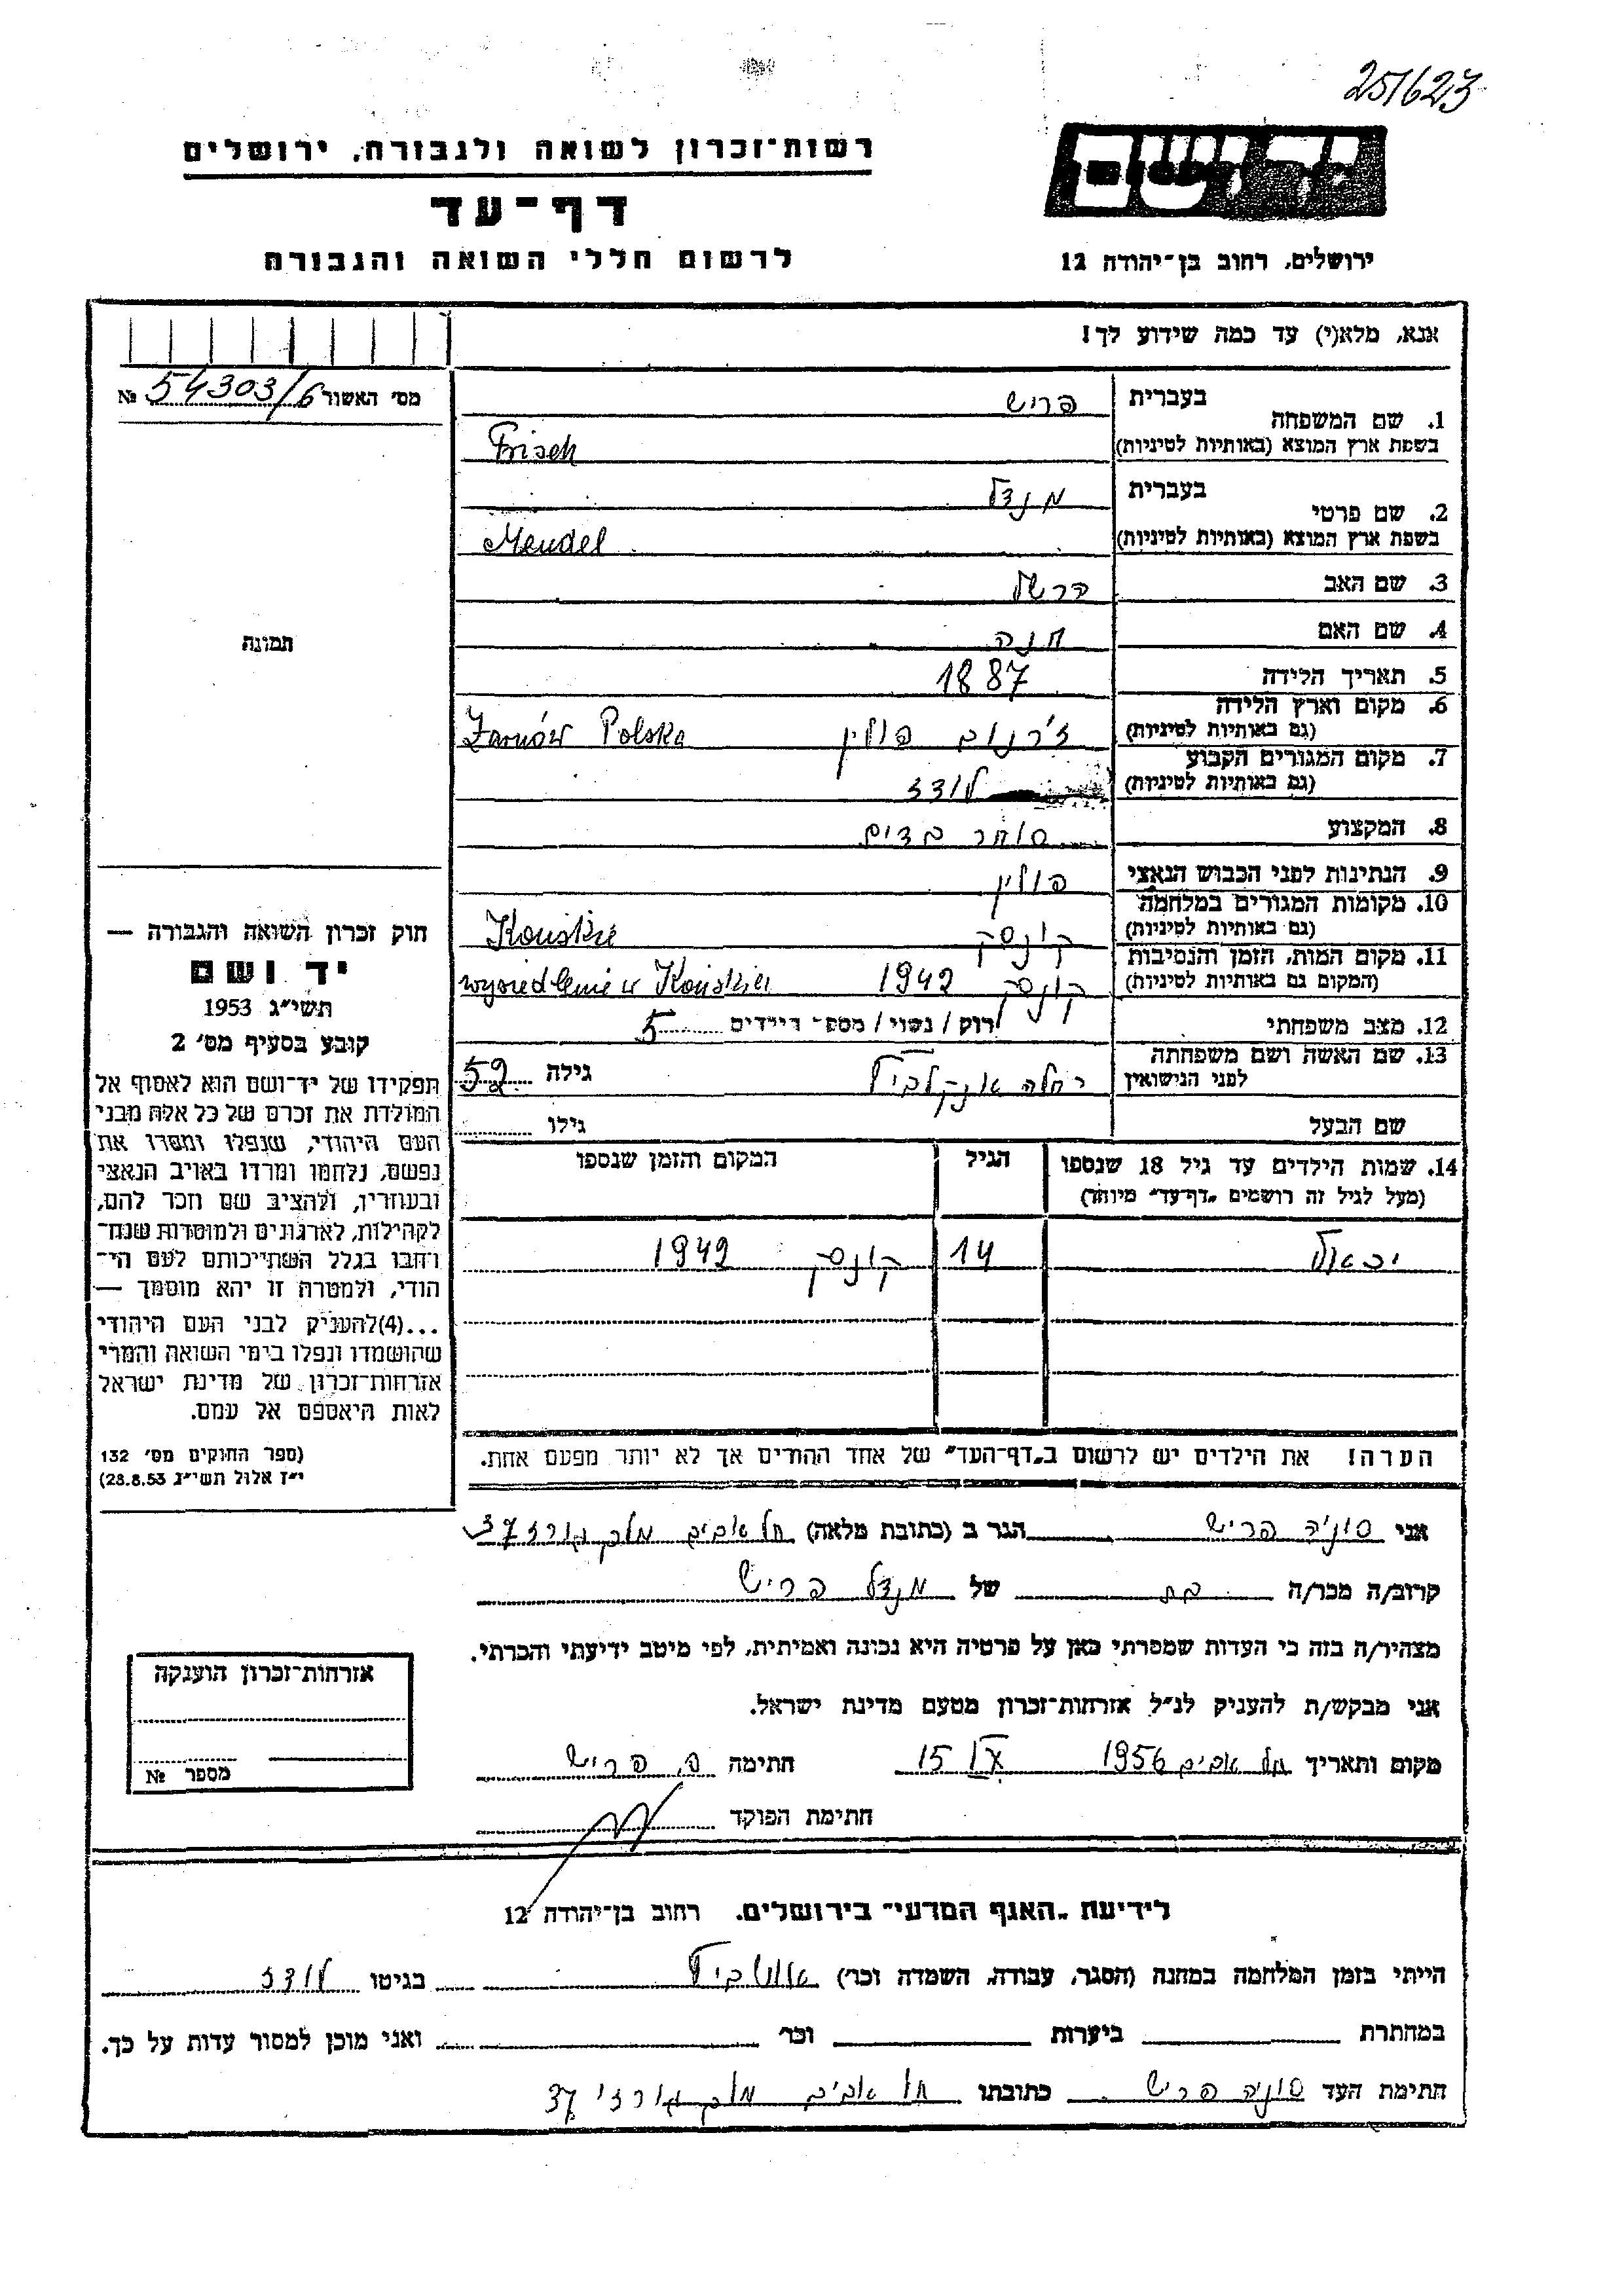 251623
רשות־זכרון לשואה ולגבורה, ירושלים
דף־עד
לרשום חללי השואה והגבורה
יד ושם
ירושלים, רחוב בן־יהודה 12
אנא, מלא(י) עד כמה שידוע לך!
מס׳ האשור 54303/6 №
1. שם המשפחה בעברית פריש
בשפת ארץ המוצא (באותיות לטיניות) Frisch
2. שם פרטי בעברית מנדל
בשפת ארץ המוצא (באותיות לטיניות) Mendel
3. שם האב הרשל
4. שם האם חנה
5. תאריך הלידה 1887
6. מקום וארץ הלידה
(גם באותיות לטיניות) ז׳רנוב פולין Żarnów Polska
7. מקום המגורים הקבוע
(גם באותיות לטיניות) לודז
8. המקצוע סוחר בדים
9. הנתינות לפני הכבוש הנאצי פולין
10. מקומות המגורים במלחמה
(גם באותיות לטיניות) קונסק Końskie
11. מקום המות, הזמן והנסיבות
(המקום גם באותיות לטיניות) קונסק 1942 wysiedlenie w Końskie
12. מצב משפחתי רוק / נשוי / מספ׳ הילדים 5
13. שם האשה ושם משפחתה
לפני הנישואין רחלה גילה 52
שם הבעל גילו
14. שמות הילדים עד גיל 18 שנספו הגיל המקום והזמן שנספו
(מעל לגיל זה רושמים „דף־עד״ מיוחד)
14 קונסק 1942
הערה! את הילדים יש לרשום ב„דף־העד״ של אחד ההורים אך לא יותר מפעם אחת.
תמונה
חוק זכרון השואה והגבורה —
יד ושם
תשי״ג 1953
קובע בסעיף מס׳ 2
תפקידו של יד־ושם הוא לאסוף אל
המולדת את זכרם של כל אלה מבני
העם היהודי, שנפלו ומסרו את
נפשם, נלחמו ומרדו באויב הנאצי
ובעוזריו, ולהציב שם וזכר להם,
לקהילות, לארגונים ולמוסדות שנח־
רחבו בגלל השתייכותם לעם הי־
הודי, ולמטרה זו יהא מוסמך —
...(4)להעניק לבני העם היהודי
שהושמדו ונפלו בימי השואה והמרי
אזרחות־זכרון של מדינת ישראל
לאות היאספם אל עמם.
(ספר החוקים מס׳ 132
י״ז אלול תשי״ג 28.8.53)
אני סוניה פריש הגר ב (כתובת מלאה) תל אביב 37
קרוב/ה מכר/ה בת של מנדל פריש
מצהיר/ה בזה כי העדות שמסרתי כאן על פרטיה היא נכונה ואמיתית, לפי מיטב ידיעתי והכרתי.
אני מבקש/ת להעניק לנ״ל אזרחות־זכרון מטעם מדינת ישראל.
מקום ותאריך תל אביב 1956 15 IX חתימה ס. פריש
חתימת הפוקד
אזרחות־זכרון הוענקה
מספר №
לידיעת „האגף המדעי״ בירושלים. רחוב בן־יהודה 12
הייתי בזמן המלחמה במחנה (הסגר, עבודה, השמדה וכר׳) אושביץ בגיטו לודז
במחתרת ביערות וכר׳ ואני מוכן למסור עדות על כך.
חתימת העד סוניה פריש כתובתו תל אביב 37